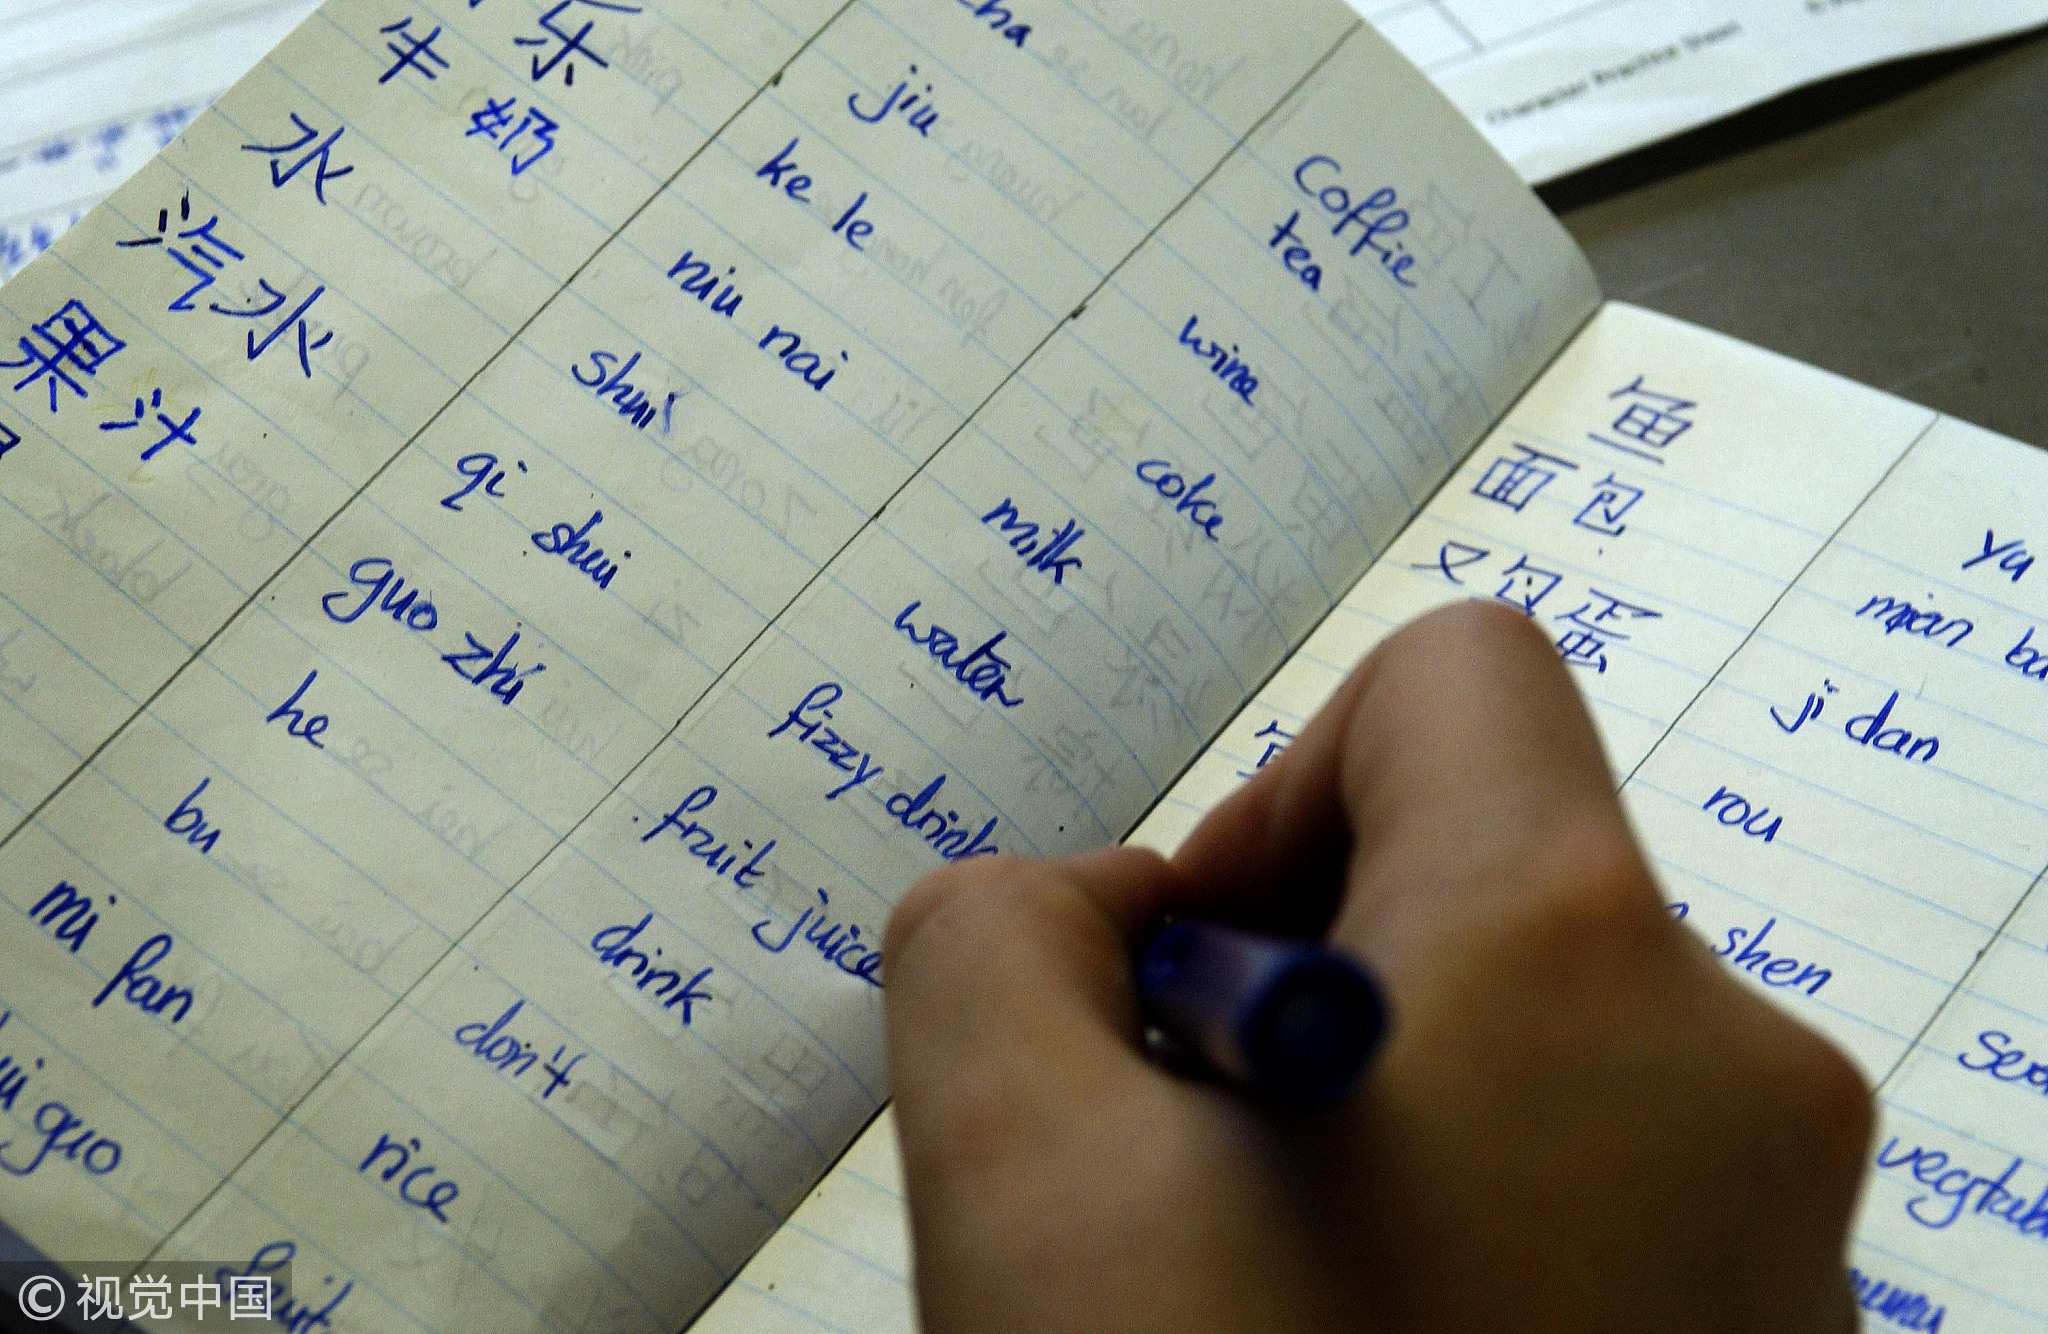 乐
牛奶
水
汽水
果汁
cha
jiu
ke le
niu nai
shui
qi shui
guo zhi
he
bu
mi fan
guo
Coffie
tea
wine
coke
milk
water
fizzy drink
fruit juice
drink
don't
rice
鱼
面包
yu
mian
ji dan
rou
shen
Character Practice Sheet
© 视觉中国